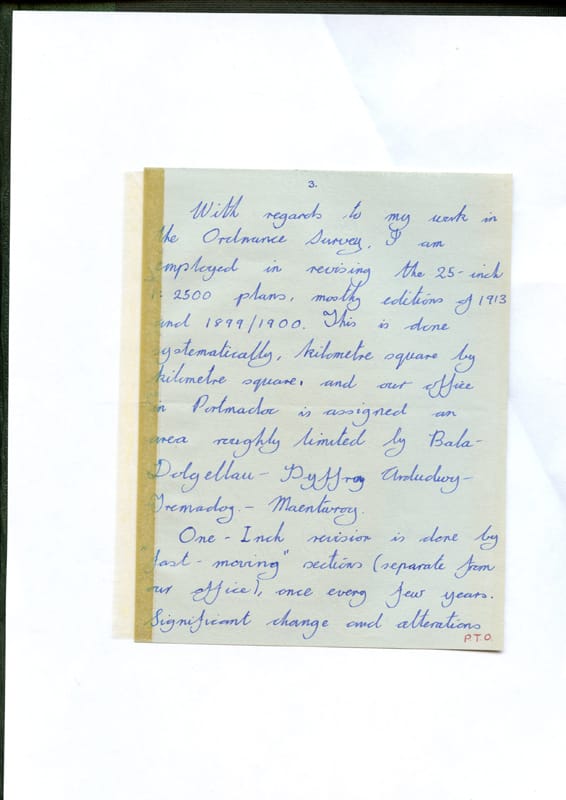 3.
With regards to my work in
the Ordnance Survey, I am
employed in revising the 25-inch
1: 2500 plans, mostly editions of 1913
and 1899/1900. This is done
systematically, kilometre square by
kilometre square, and our office
in Portmadoc is assigned an
area roughly limited by Bala-
Dolgellau- Dyffryn Ardudwy-
Tremadog.- Maentwrog.
One-Inch revision is done by
"fast-moving" sections (separate from
our office), once every few years.
Significant change and alterations
P.T.O.